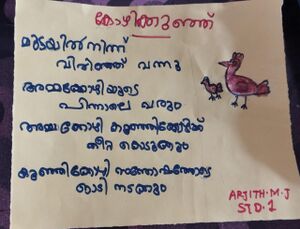 കോഴിക്കുഞ്ഞ്
മുട്ടയിൽ നിന്ന്
വിരിഞ്ഞ് വന്നു
അമ്മക്കോഴിയുടെ
പിന്നാലെ വരും
അമ്മക്കോഴി കുഞ്ഞിക്കോഴിക്ക്
തീറ്റ കൊടുക്കും
കുഞ്ഞിക്കോഴി സന്തോഷത്തോടെ
ഓടി നടക്കും
ARJITH.M.J
STD.1